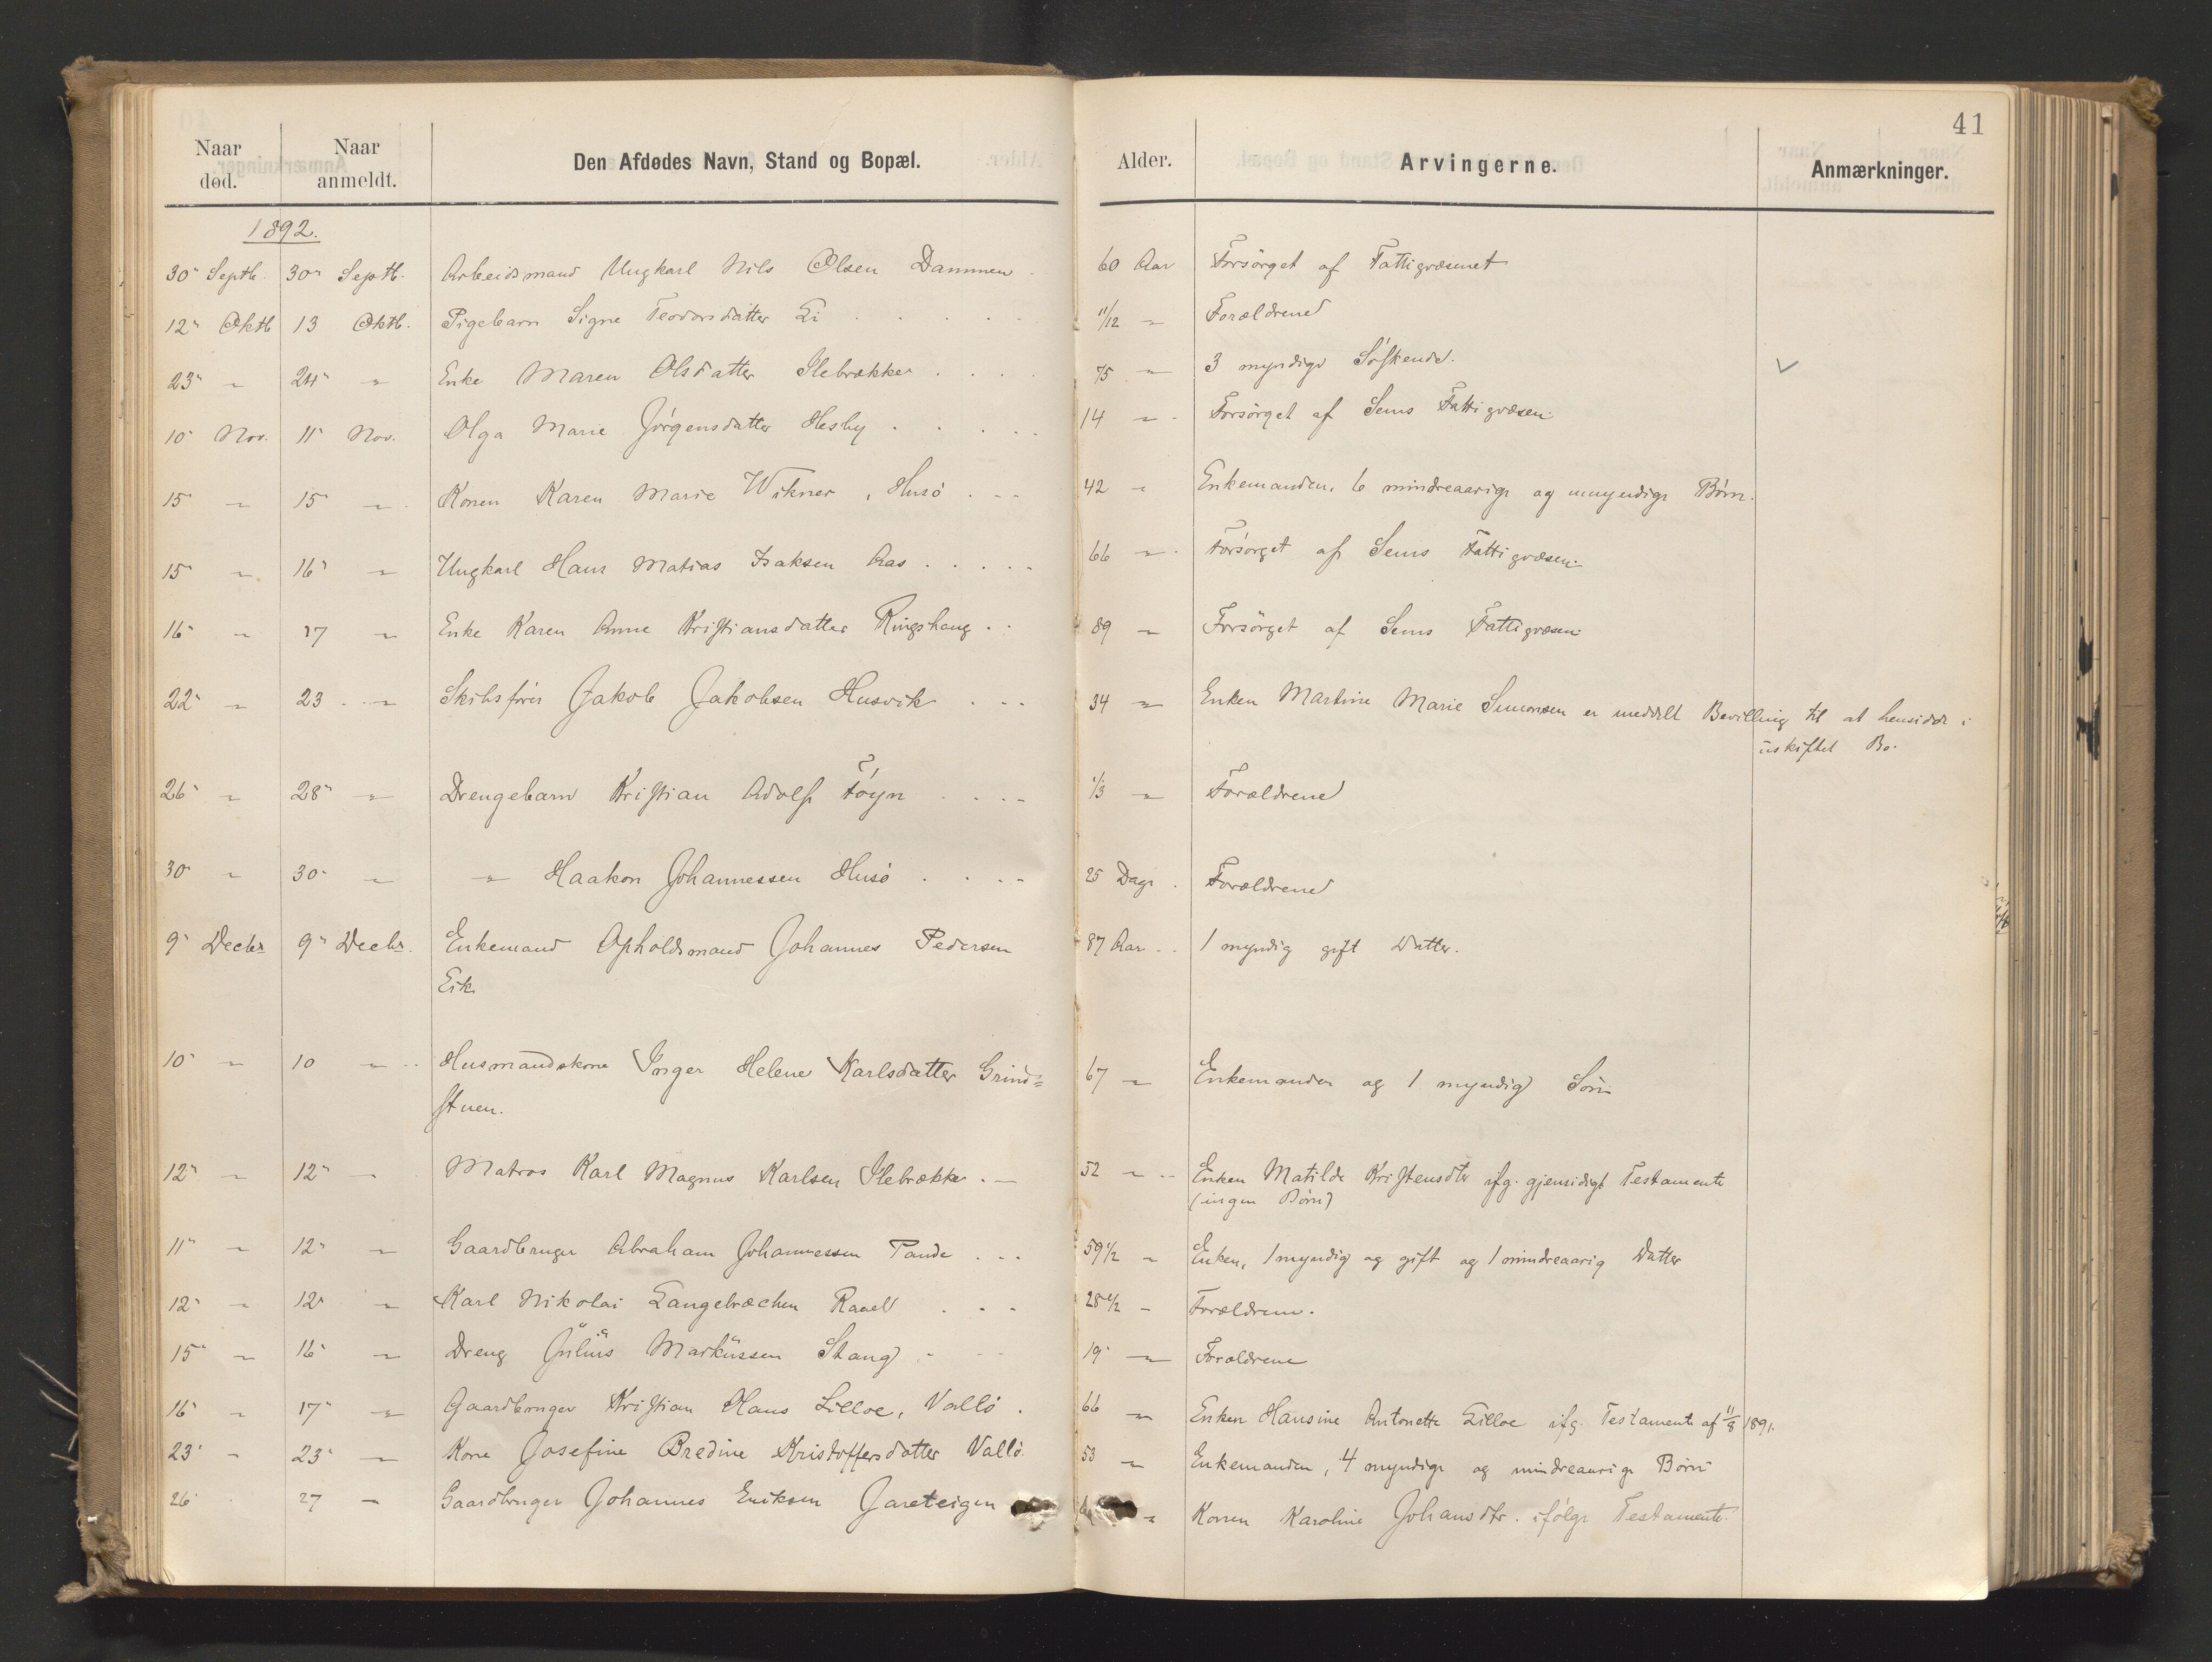 41
Naar død. Naar anmeldt. Den Afdødes Navn, Stand og Bopæl. Alder. Arvingerne. Anmærkninger.
1892.
30" Septb. 30" Septb. Arbeidsmand Ungkarl Nils Olsen Dammen 60 Aar Forsørget af Fattigvæsenet
12" Oktb 13 Oktb. Pigebarn Signe Teodorsdatter Ei . . . . . 11/12 " Forældrene
23" " 24" " Enke Maren Olsdatter Ilebrækker . . . . 75 " 3 myndige Søskende. ✓
10 Nov. 11" Nov. Olga Marie Jørgensdatter Hesby . . . . . 14 " Forsørget af Sems Fattigvæsen.
15" " 15" " Konen Karen Marie Wikner, Husø . - - 42 " Enkemanden, 6 mindreaarige og umyndige Børn.
15" " 16" " Ungkarl Hans Matias Isaksen Aas . . . . . 66 " Forsørget af Sems Fattigvæsen.
16" " 17 " Enke Karen Anne Kristiansdatter Ringshaug . . 89 " Forsørget af Sems Fattigvæsen.
22" " 23 " Skibsfører Jakob Jakobsen Husvik . . . 34 " Enken Martine Marie Simonsen er meddelt Bevilling til at hensidde i
uskiftet Bo.
26" " 28" " Drengebarn Kristian Adolf Føyn . . . . 1/3 " Forældrene
30" " 30" " " Haakon Johannessen Husø . . . . 25 Dage . Forældrene
9" Decbr 9" Decbr. Enkemand Opholdsmand Johannes Pedersen 87 Aar . . 1 myndig gift Datter.
Eik
10" " 10 " Husmandskone Inger Helene Karlsdatter Grind= 67 " Enkemanden og 1 myndig Søn
stuen.
12" " 12" " Matros Karl Magnus Karlsen Ilebrække . - 52 " Enken Matilde Kristensdtr ifg. gjensidigt Testamente
(ingen Børn)
11" " 12" " Gaardbruger Abraham Johannessen Tande . . . 59 1/2 " Enken, 1 myndig og gift og 1 mindreaarig Datter
12" " 12" " Karl Nikolai Langebræchen Rauel . . . 28 1/2 " Forældrene.
15" " 16" " Dreng Julius Markussen Stang . . . 19" " Forældrene
16" " 17" " Gaardbruger Kristian Hans Lilloe, Vallø . 66 " Enken Hansine Antonette Lilloe ifg. Testamente af 11/8 1891.
23" " 23" " Kone Josefine Bredine Kristoffersdatter Vallø. 53 " Enkemanden, 4 myndige og mindreaarige Børn
26" 27 " Gaardbruger Johannes Eriksen Jareteigen " Konen Karoline Johansdtr. ifølge Testamente.